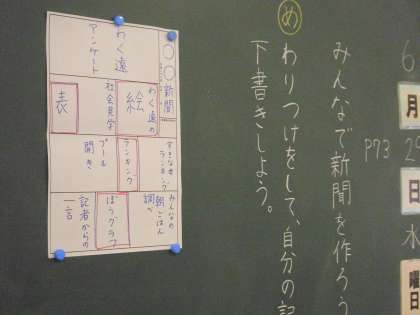 6
月
日
水
曜日
P73
みんなで新聞を作ろう
め
わりつけをして、自分の記
下書きしよう。
〇〇新聞
わく遠の
絵
社会見学
表
わく遠
アンケート
ランキング
ランキング
プール
開き
みんなの
朝ごはん
調べ
ぼうグラフ
記者からの
一言